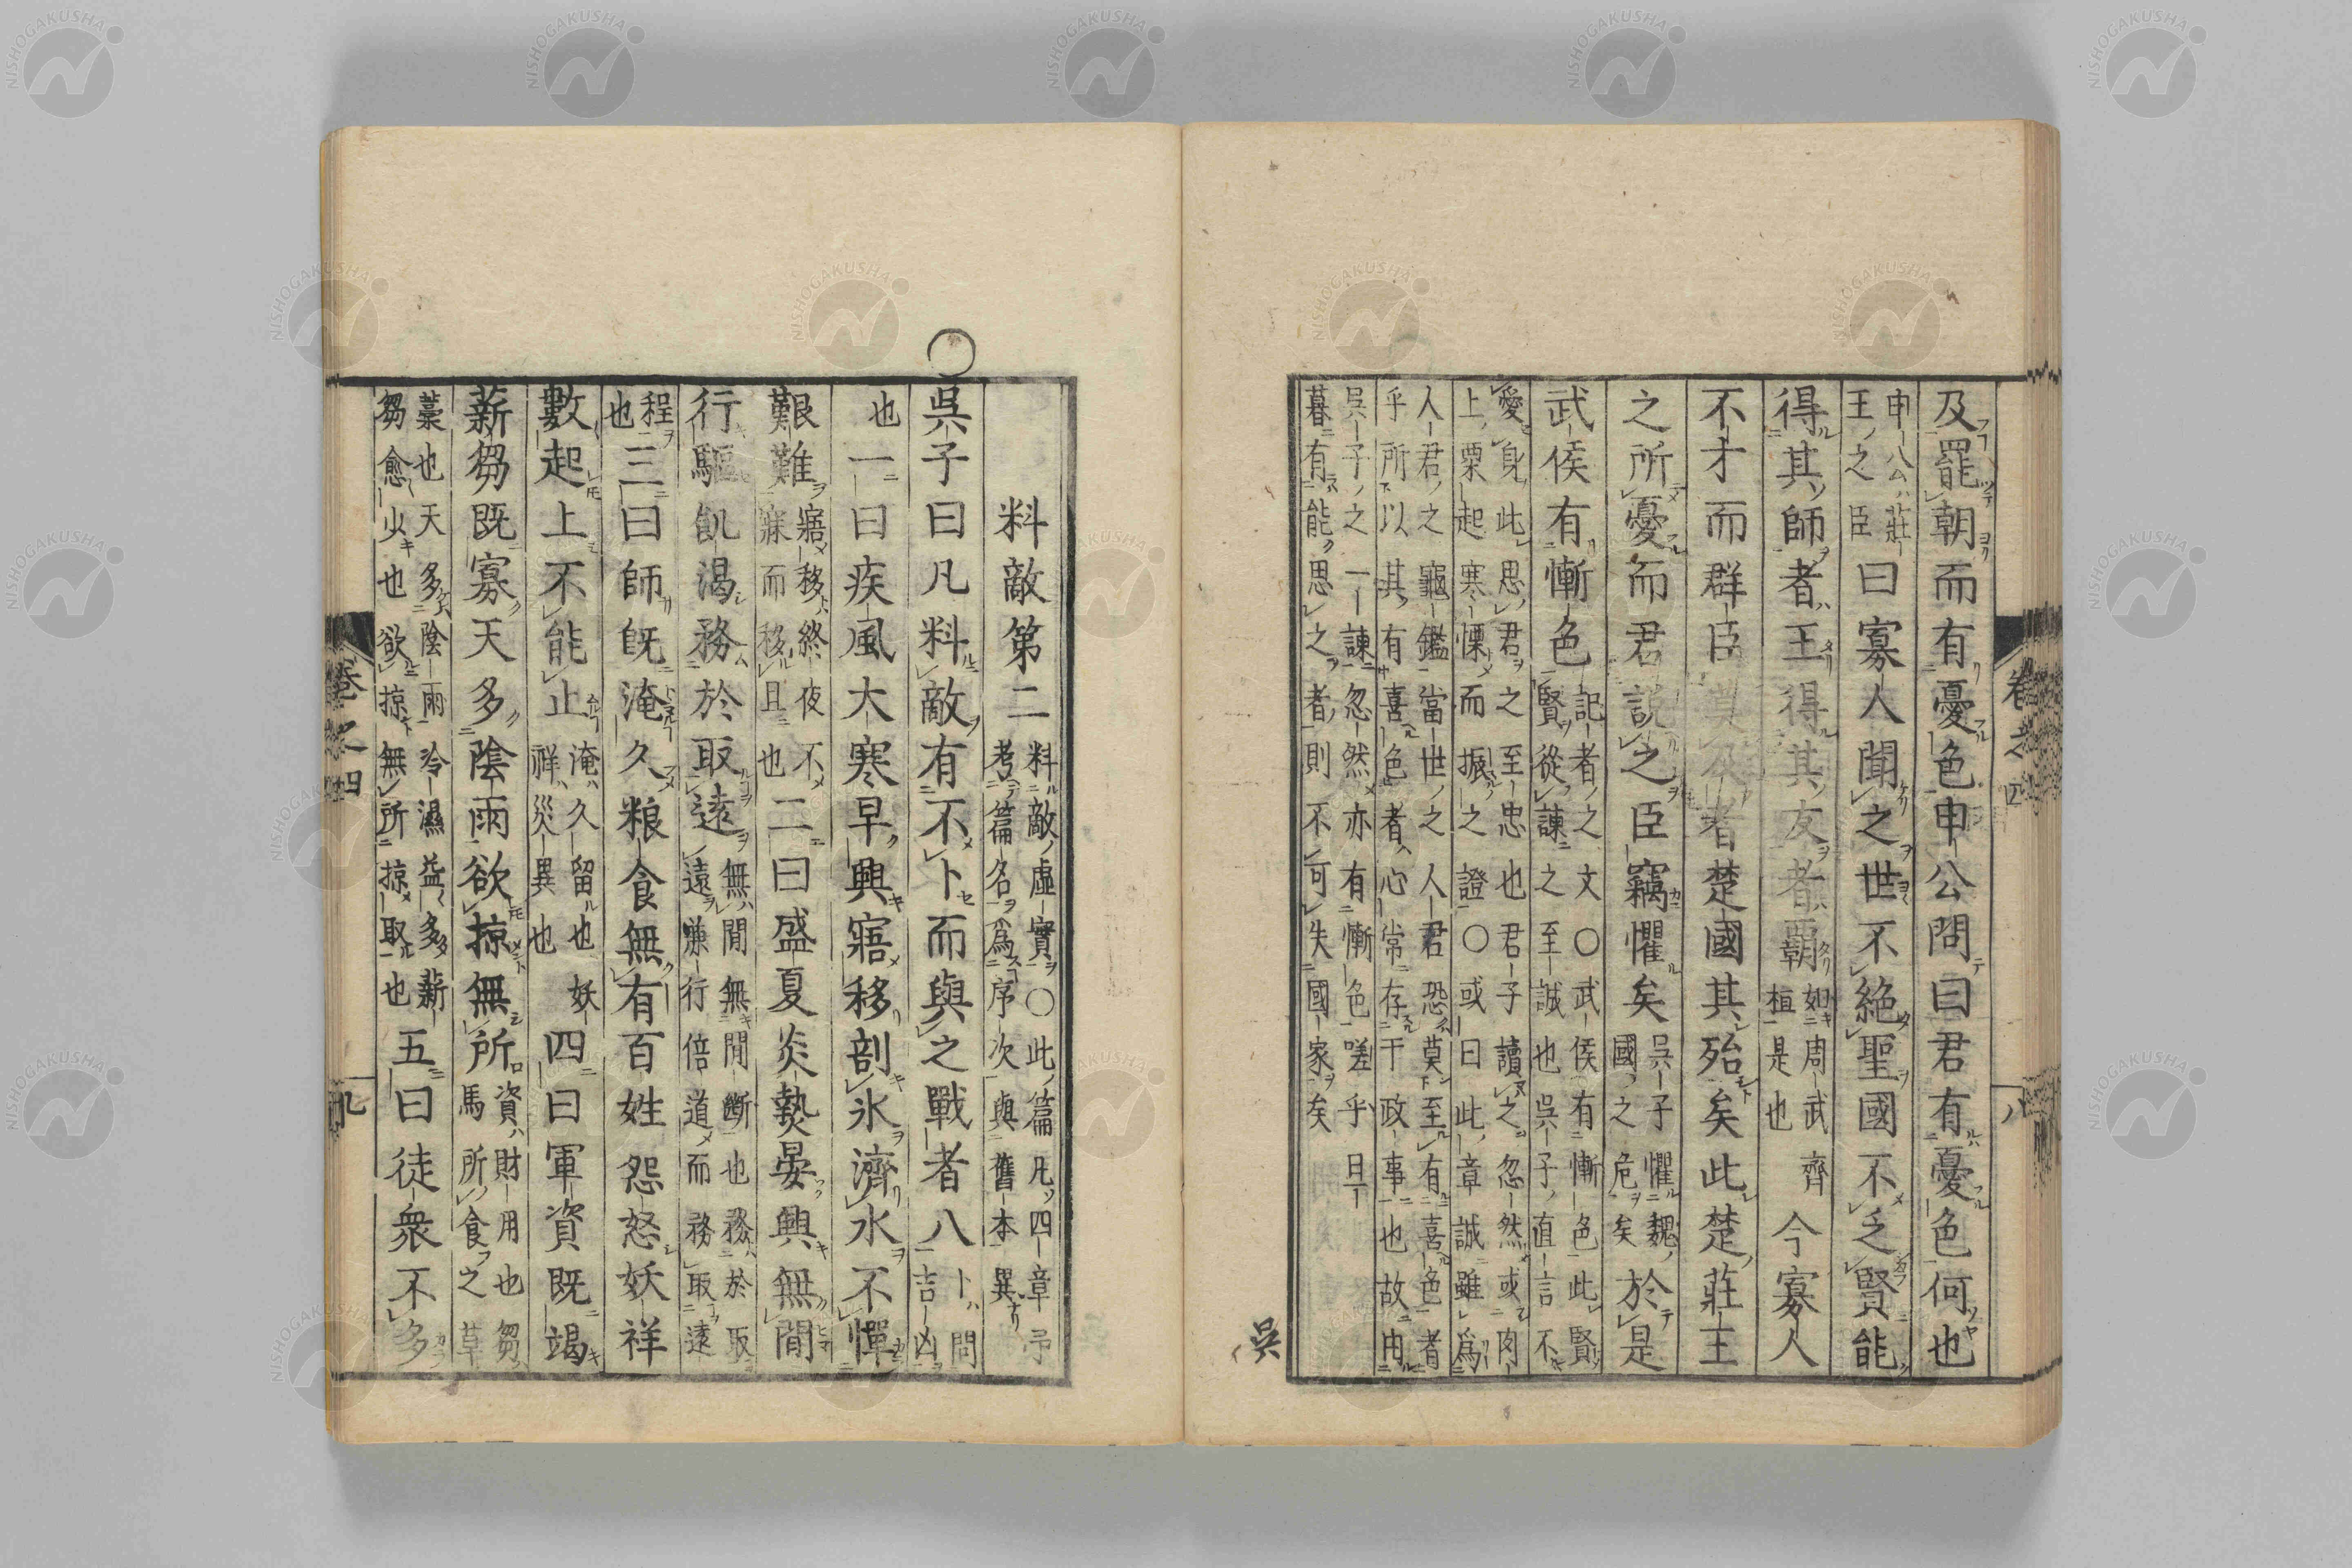 及罷朝而有憂色申公問曰君有憂色何也
申公莊王之臣曰寡人聞之世不絶聖國不乏賢能
得其師者王得其友者霸如周武齊桓是也今寡人
不才而群臣莫及者楚國其殆矣此楚莊王
之所憂而君説之臣竊懼矣吳子懼魏國之危矣於是
武侯有慚色記者之文○武侯有慚色此賢賢從諫之至誠也吳子直言不
愛身此思君之至忠也君子讀之忽然或肉上粟起寒慄而振之證○或曰此章誠雖爲
人君之龜鑑當世之人君恐莫至有喜色者乎所以其有喜色者心常存于政事也故由
吳子之一諫忽然亦有慚色嗟乎旦暮有能思之者則不可失國家矣
吳
卷之四
八
料敵第二料敵虛實○此篇凡四章予考篇名爲序次與舊本異
吳子曰凡料敵有不卜而與之戰者八卜問吉凶
也一曰疾風大寒早興寤移剖氷濟水不憚
艱難寤移終夜不寐而移且也二曰盛夏炎熱晏興無間
行驅飢渴務於取遠無間無間斷也務於取遠嫌行倍道而務取遠
程也三曰師既淹久粮食無有百姓怨怒妖祥
數起上不能止淹久留也妖祥災異也四曰軍資既竭
薪芻既寡天多陰雨欲掠無所資財用也芻馬所食之草
藁也天多陰雨冷濕益多薪芻愈少也欲掠無所掠取也五曰徒衆不多
卷之四
九